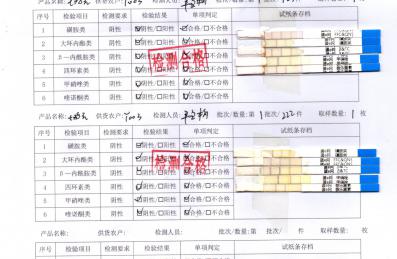 序号 检验项目 检测要求 检验结果 单项判定 试纸条存档
1 磺胺类 阴性 ☑阴性/□阳性 ☑合格/□不合格
2 大环内酯类 阴性 ☑阴性/□阳性 ☑合格/□不合格
3 β一内酰胺类 阴性 ☑阴性/□阳性 ☑合格/□不合格
4 四环素类 阴性 ☑阴性/□阳性 ☑合格/□不合格
5 甲硝唑类 阴性 ☑阴性/□阳性 ☑合格/□不合格
6 喹诺酮类 阴性 ☑阴性/□阳性 ☑合格/□不合格
检测合格
产品名称: 供货农户: 检测人员: 批次/数量:第1批次/222件 取样数量:1枚
序号 检验项目 检测要求 检验结果 单项判定 试纸条存档
1 磺胺类 阴性 ☑阴性/□阳性 ☑合格/□不合格
2 大环内酯类 阴性 ☑阴性/□阳性 ☑合格/□不合格
3 β一内酰胺类 阴性 ☑阴性/□阳性 ☑合格/□不合格
4 四环素类 阴性 ☑阴性/□阳性 ☑合格/□不合格
5 甲硝唑类 阴性 ☑阴性/□阳性 ☑合格/□不合格
6 喹诺酮类 阴性 ☑阴性/□阳性 ☑合格/□不合格
检测合格
产品名称: 供货农户: 检测人员: 批次/数量:第 批次/ 件 取样数量: 枚
序号 检验项目 检测要求 检验结果 单项判定 试纸条存档